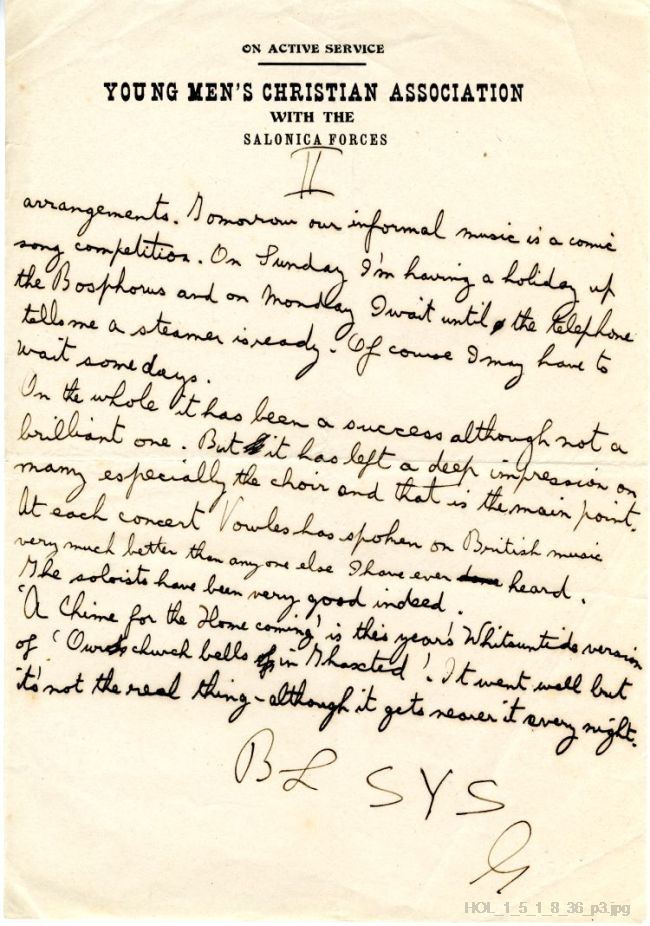 ON ACTIVE SERVICE
YOUNG MEN'S CHRISTIAN ASSOCIATION
WITH THE
SALONICA FORCES
II
arrangements. Tomorrow our informal music is a comic
song competition. On Sunday I'm having a holiday up
the Bosphorus and on Monday I wait until the telephone
tells me a steamer is ready. Of course I may have to
wait some days.
On the whole it has been a success although not a
brilliant one. But it has left a deep impression on
many especially the choir and that is the main point.
At each concert Vowles has spoken on British music
very much better than any one else I have ever done heard.
The soloists have been very good indeed.
'A Chime for the Home coming' is this year's Whitsuntide version
of 'Our church bells in Thaxted'. It went well but
it's not the real thing - although it gets nearer it every night.
BL SYS
G
HOL_1_5_1_8_36_p3.jpg